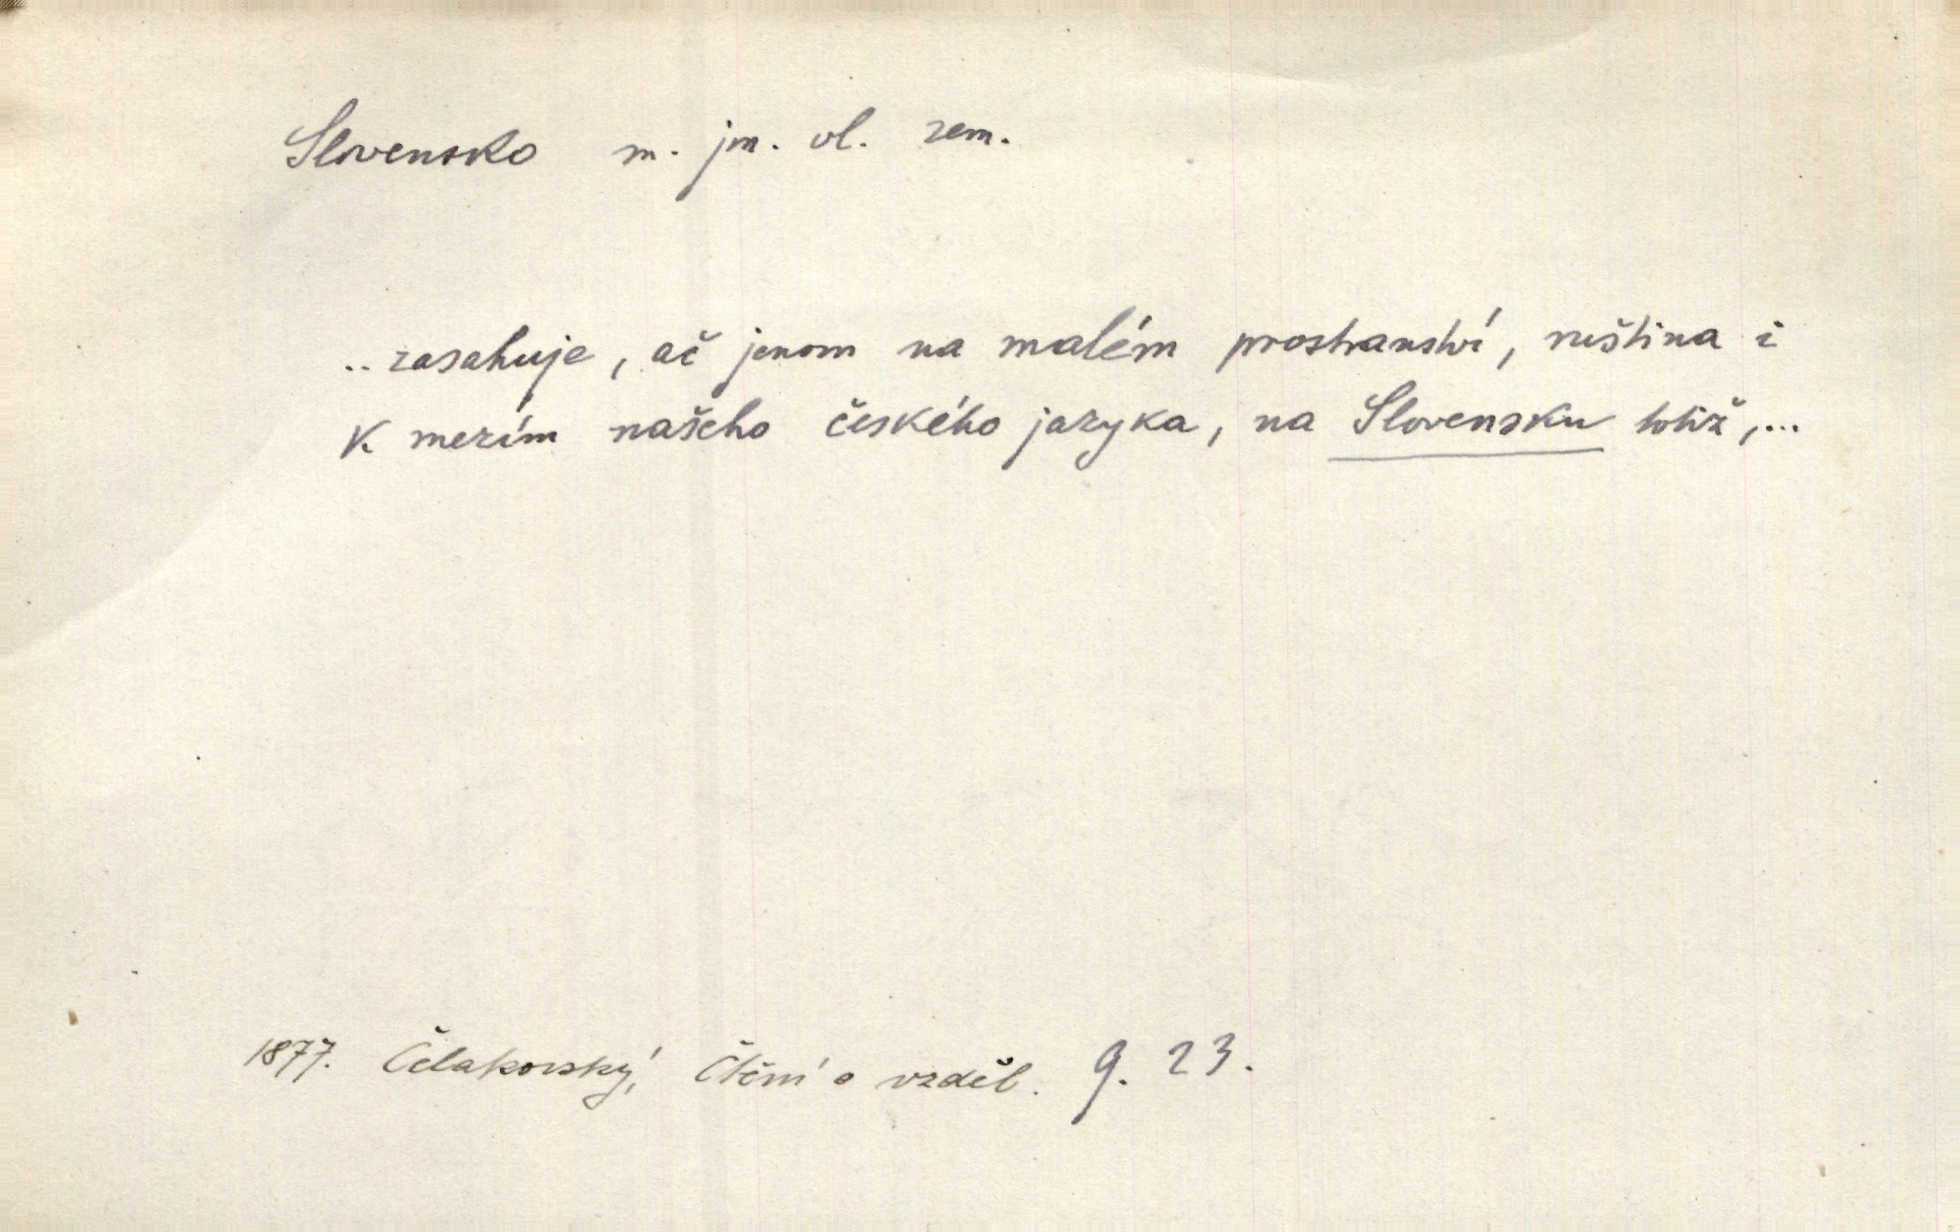 Slovensko m. jm. vl. zem.
.. zasahuje, ač jenom na malém prostranství, ruština i
k mezím našeho českého jazyka, na Slovensku totiž,...
1877. Čelakovský, Čtení o vzděl. 9. 23.